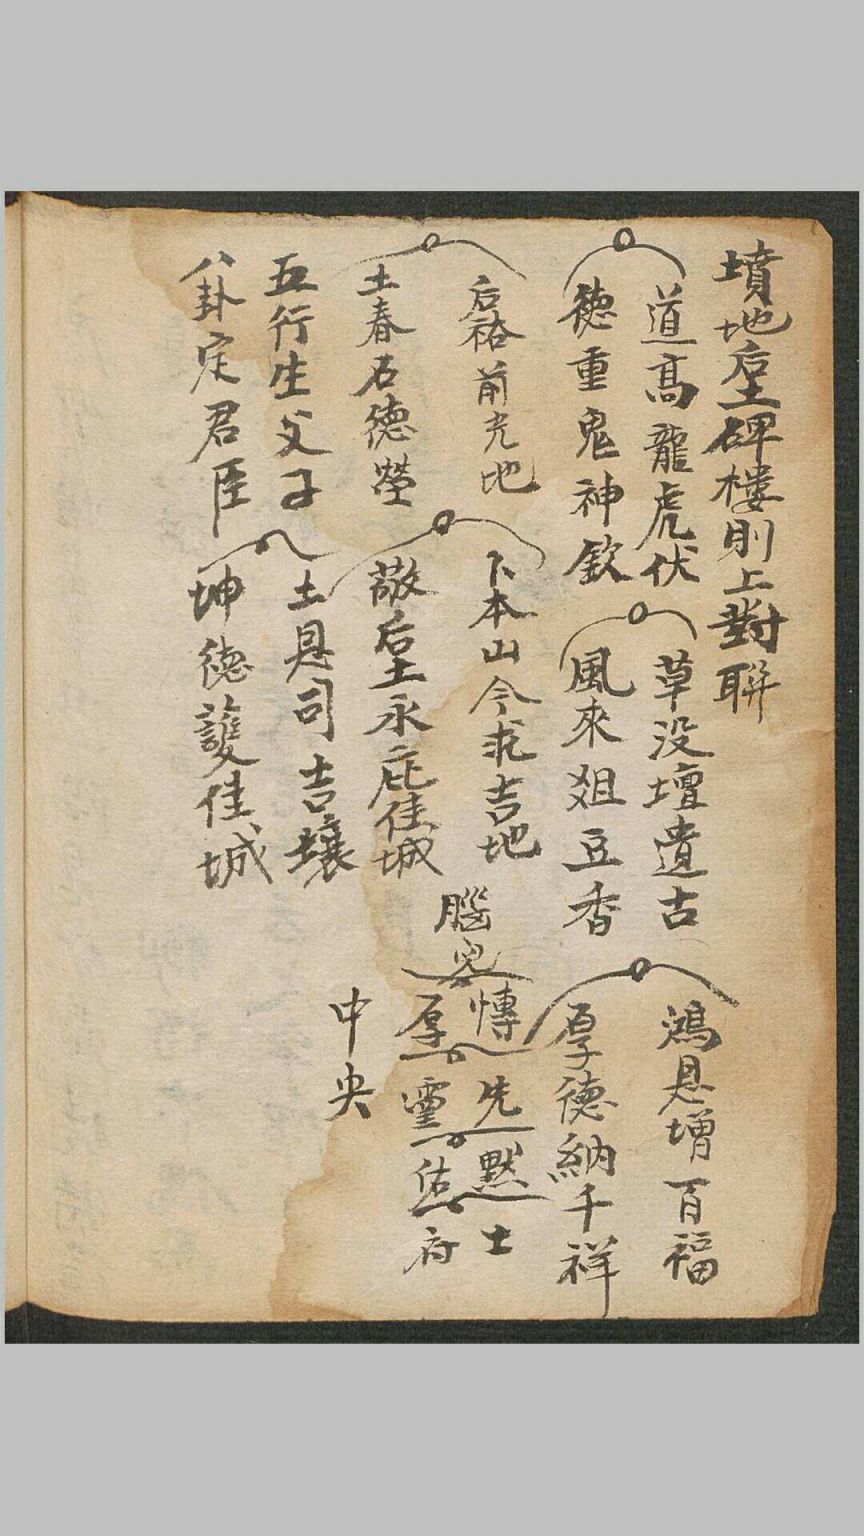 墳地后土碑樓則上對聯
道高龍虎伏
德重鬼神欽
草没壇遺古
風來俎豆香
鴻恩增百福
厚德納千祥
后裕前光地
土春石德瑩
卜本山今求吉地
敬后土永庇佳城
五行生父子
八卦定君臣
土恩司吉壤
坤德護佳城
腦
先
默
士
厚
靈
佑
府
中央